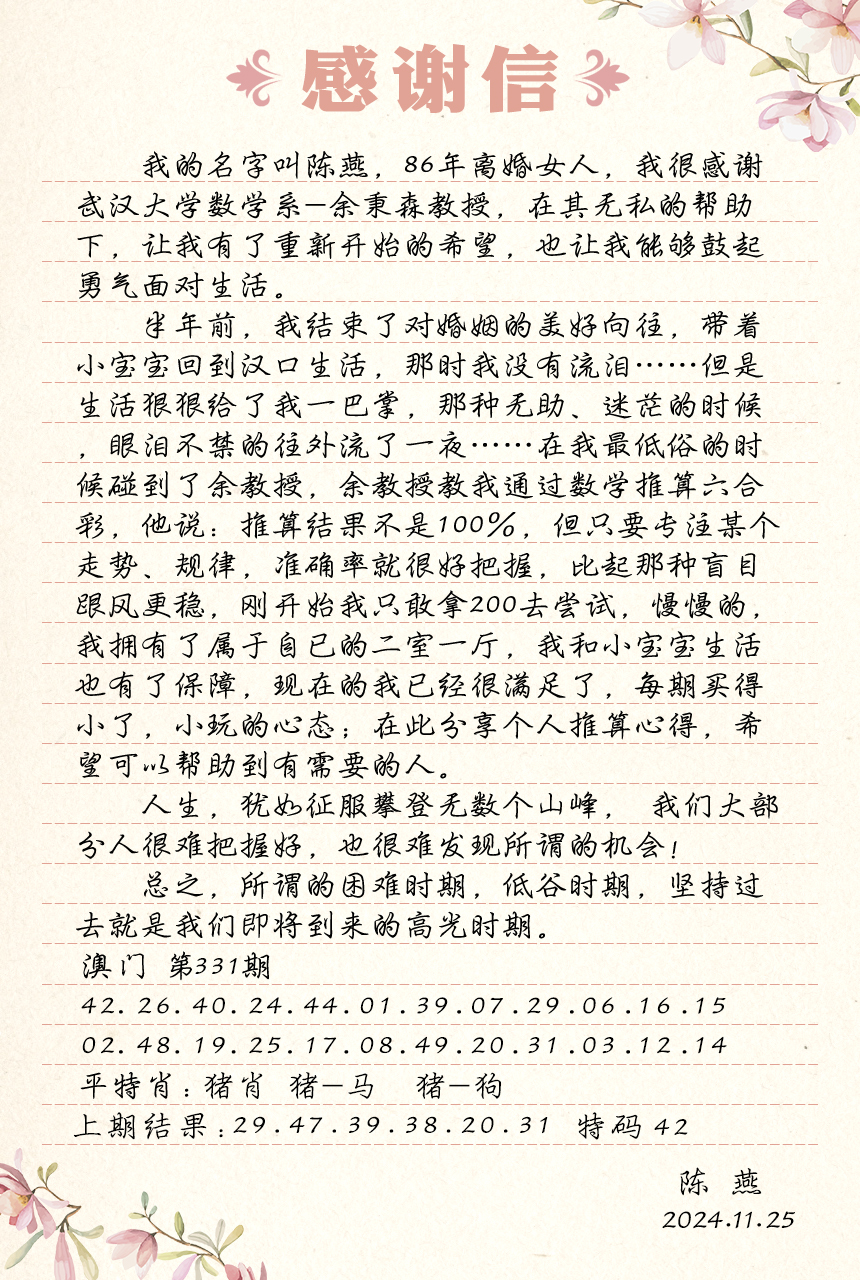 感谢信
我的名字叫陈燕，86年离婚女人，我很感谢
武汉大学数学系—余秉森教授，在其无私的帮助
下，让我有了重新开始的希望，也让我能够鼓起
勇气面对生活。
半年前，我结束了对婚姻的美好向往，带着
小宝宝回到汉口生活，那时我没有流泪……但是
生活狠狠给了我一巴掌，那种无助、迷茫的时候
，眼泪不禁的往外流了一夜……在我最低俗的时
候碰到了余教授，余教授教我通过数学推算六合
彩，他说：推算结果不是100%，但只要专注某个
走势、规律，准确率就很好把握，比起那种盲目
跟风更稳，刚开始我只敢拿200去尝试，慢慢的，
我拥有了属于自已的二室一厅，我和小宝宝生活
也有了保障，现在的我已经很满足了，每期买得
小了，小玩的心态；在此分享个人推算心得，希
望可以帮助到有需要的人。
人生，犹如征服攀登无数个山峰， 我们大部
分人很难把握好，也很难发现所谓的机会！
总之，所谓的困难时期，低谷时期，坚持过
去就是我们即将到来的高光时期。
澳门 第331期
42.26.40.24.44.01.39.07.29.06.16.15
02.48.19.25.17.08.49.20.31.03.12.14
平特肖：猪肖 猪—马 猪—狗
上期结果：29.47.39.38.20.31 特码 42
陈 燕
2024.11.25